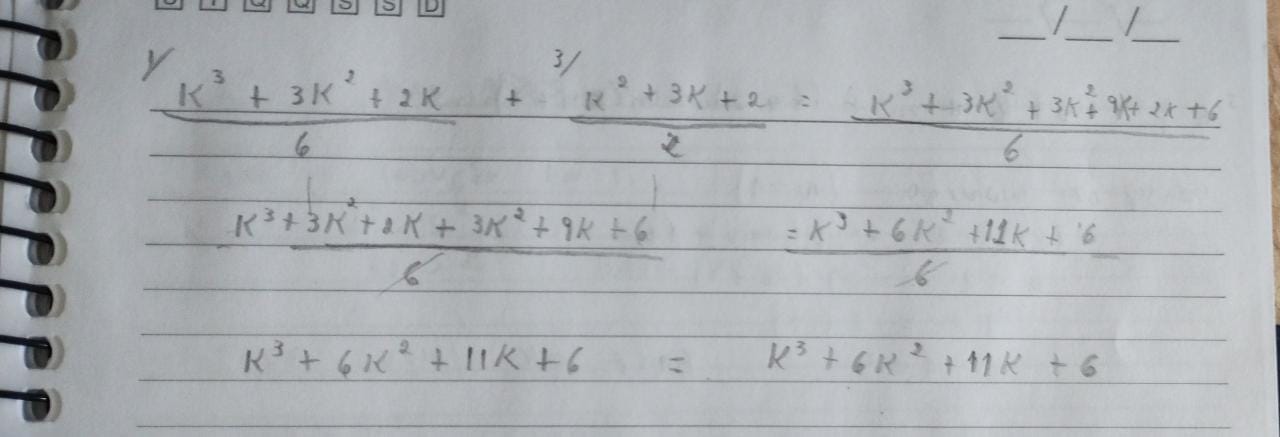 S T Q Q S S D
__/__/__
1/ 3/
K³ + 3K² + 2K + K² + 3K + 2 = K³ + 3K² + 3K² + 9K + 2K + 6
6 2 6
K³ + 3K² + 2K + 3K² + 9K + 6 = K³ + 6K² + 11K + 6
6 6
K³ + 6K² + 11K + 6 = K³ + 6K² + 11K + 6